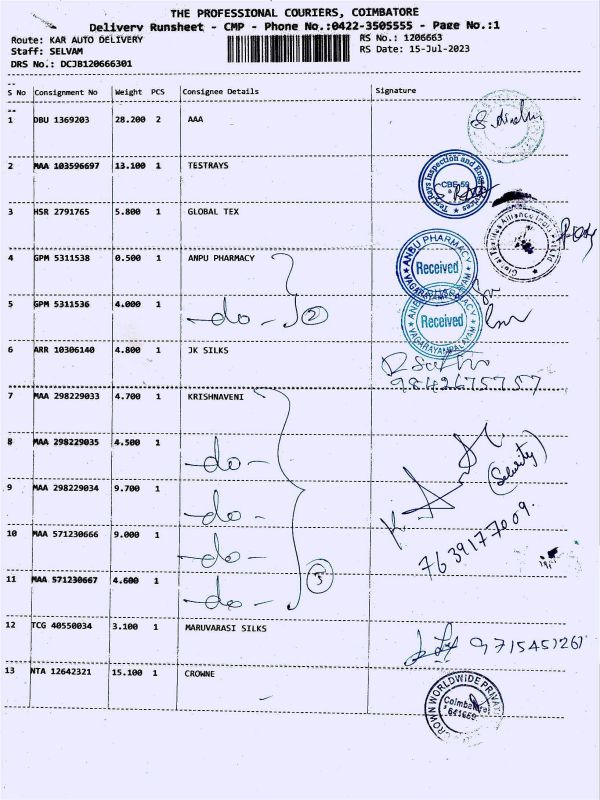 THE PROFESSIONAL COURIERS, COIMBATORE
Delivery Runsheet - CMP - Phone No.:0422-3505555 - Page No.:1
Route: KAR AUTO DELIVERY
RS No.: 1206663
Staff: SELVAM
RS Date: 15-Jul-2023
DRS No.: DCJB120666301
S No Consignment No Weight PCS Consignee Details Signature
1 DBU 1369203 28.200 2 AAA
2 MAA 103596697 13.100 1 TESTRAYS
Test Rays Inspection and Engg
CBE-59
3 HSR 2791765 5.800 1 GLOBAL TEX
4 GPM 5311538 0.500 1 ANPU PHARMACY
ANBU PHARMACY
Received
VAGARAYAMPALAYAM
5 GPM 5311536 4.000 1 -do- 2
ANBU PHARMACY
Received
VAGARAYAMPALAYAM
6 ARR 10306140 4.800 1 JK SILKS
9842675757
7 MAA 298229033 4.700 1 KRISHNAVENI
8 MAA 298229035 4.500 1 -do-
(Security)
9 MAA 298229034 9.700 1 -do-
7639177009
10 MAA 571230666 9.000 1 -do-
11 MAA 571230667 4.600 1 -do- 5
12 TCG 40550034 3.100 1 MARUVARASI SILKS
9715451261
13 NTA 12642321 15.100 1 CROWNE
CROWN WORLDWIDE PRIVATE
Coimbatore
641659